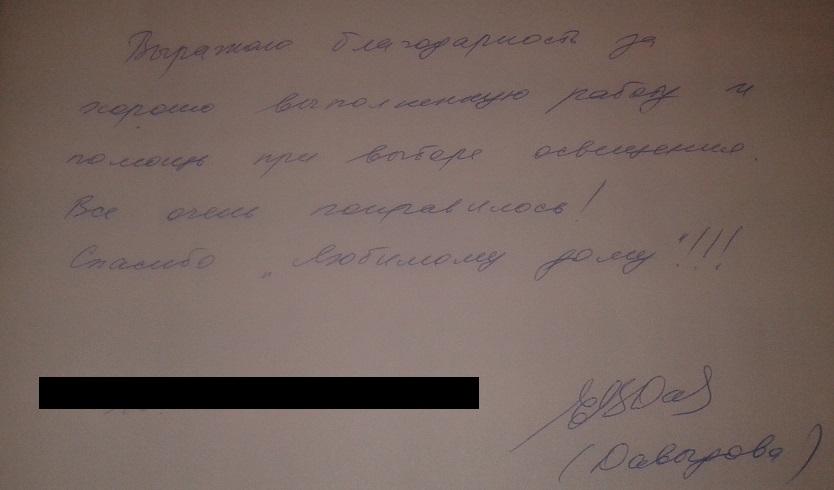 Выражаю благодарность за
хорошо выполненную работу и
помощь при выборе освещения.
Все очень понравилось!
Спасибо „Любимому дому"!!!
(Давыдова)